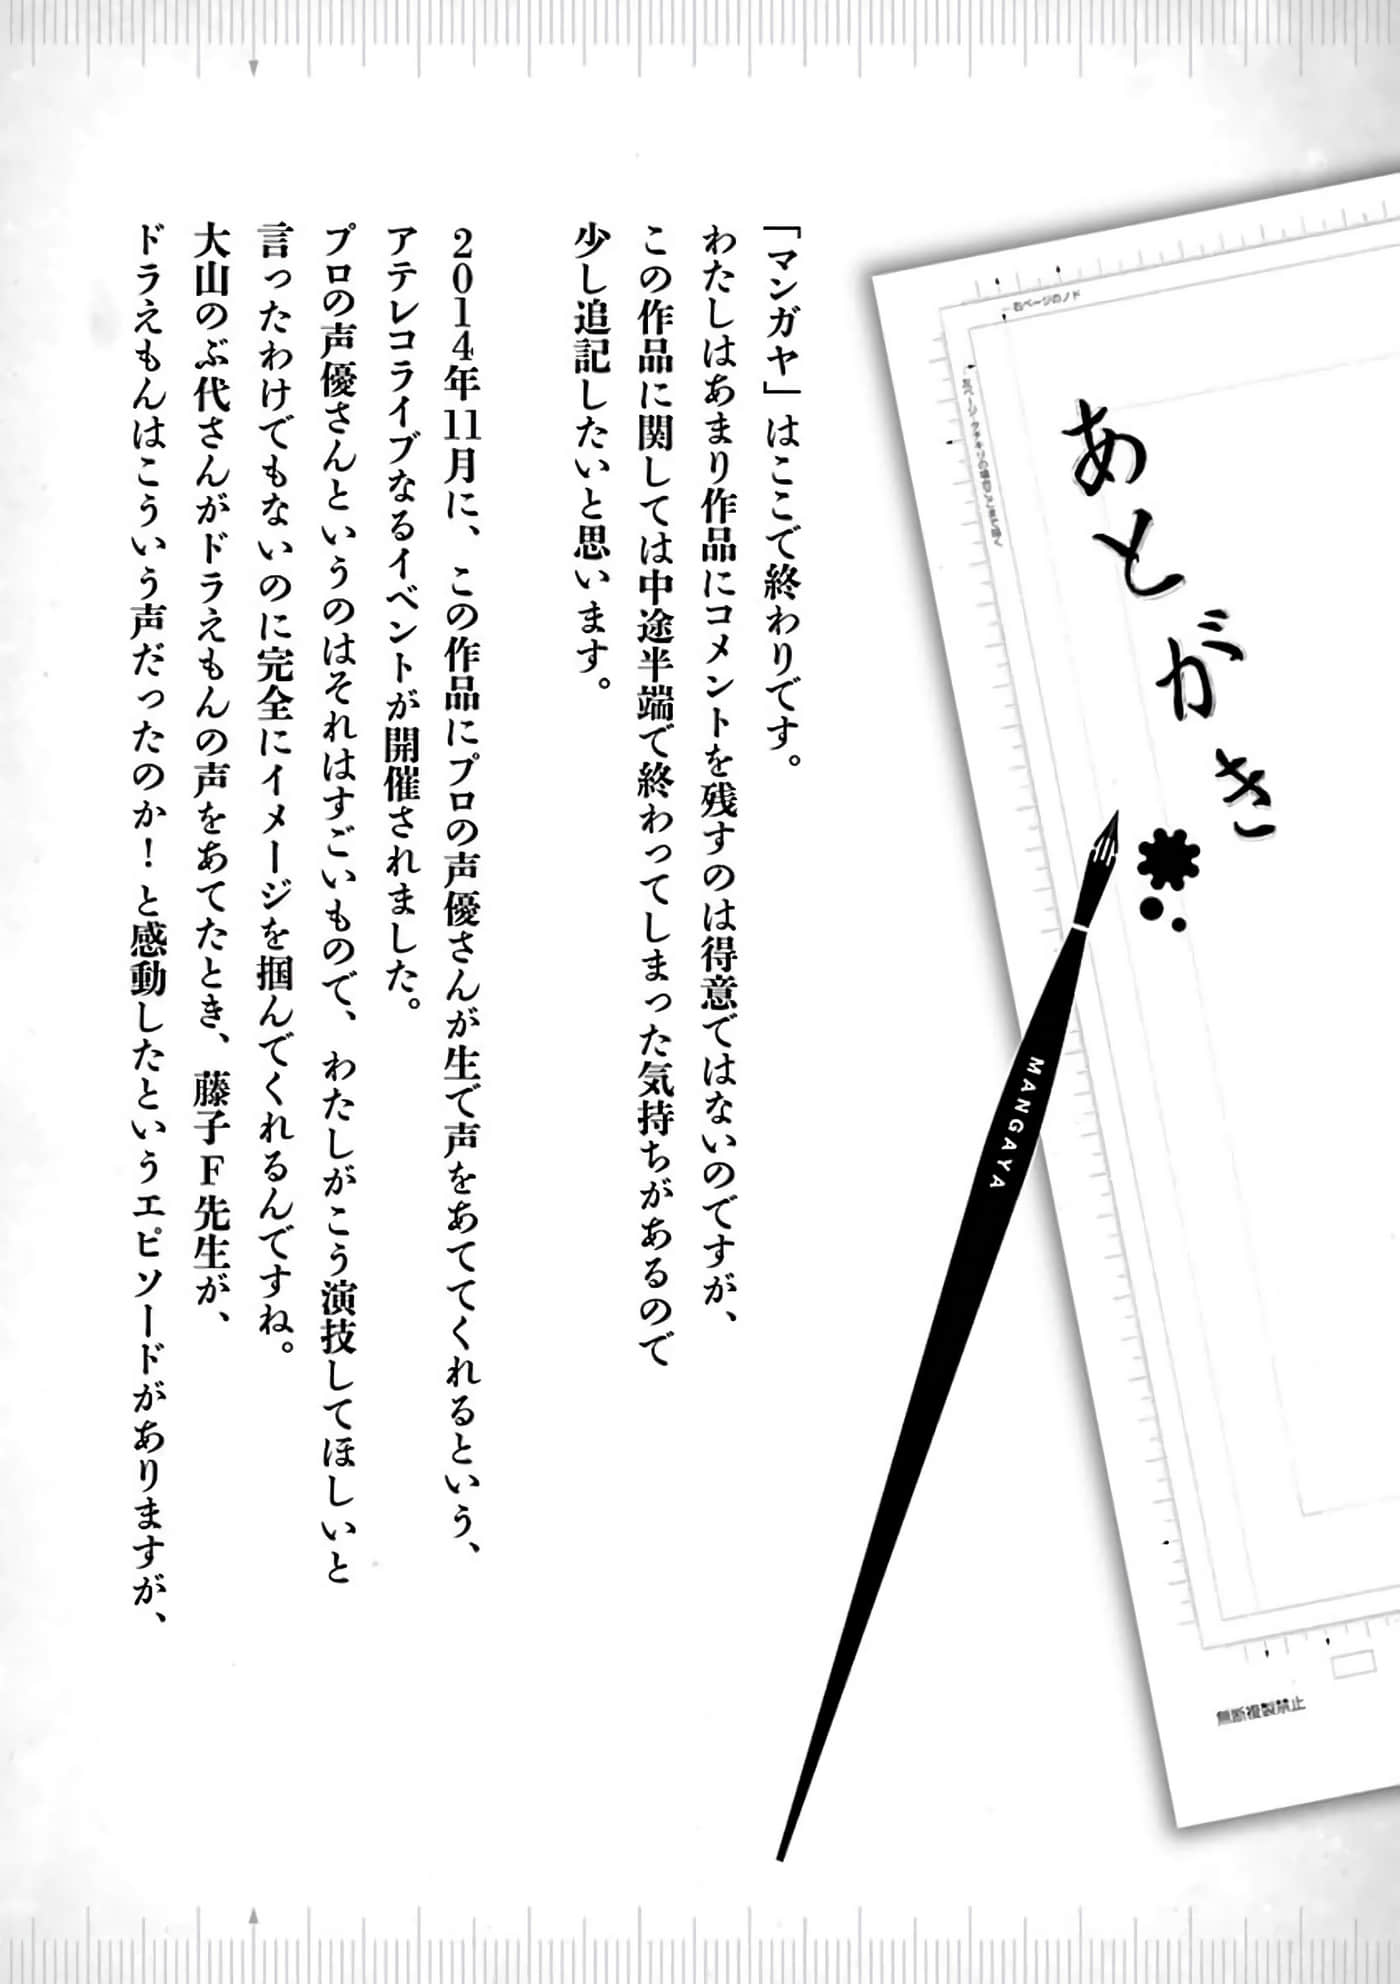 あとがき
「マンガヤ」はここで終わりです。
わたしはあまり作品にコメントを残すのは得意ではないのですが、
この作品に関しては中途半端で終わってしまった気持ちがあるので
少し追記したいと思います。
2014年11月に、この作品にプロの声優さんが生で声をあててくれるという、
アテレコライブなるイベントが開催されました。
プロの声優さんというのはそれはすごいもので、わたしがこう演技してほしいと
言ったわけでもないのに完全にイメージを掴んでくれるんですね。
大山のぶ代さんがドラえもんの声をあてたとき、藤子F先生が、
ドラえもんはこういう声だったのか！と感動したというエピソードがありますが、
MANGAYA
右ページのノド
無断複製禁止